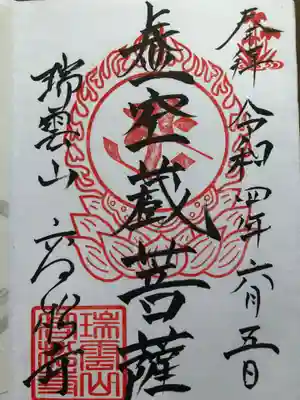 奉拝
令和四年六月五日
虚空蔵菩薩
瑞雲山
瑞雲山